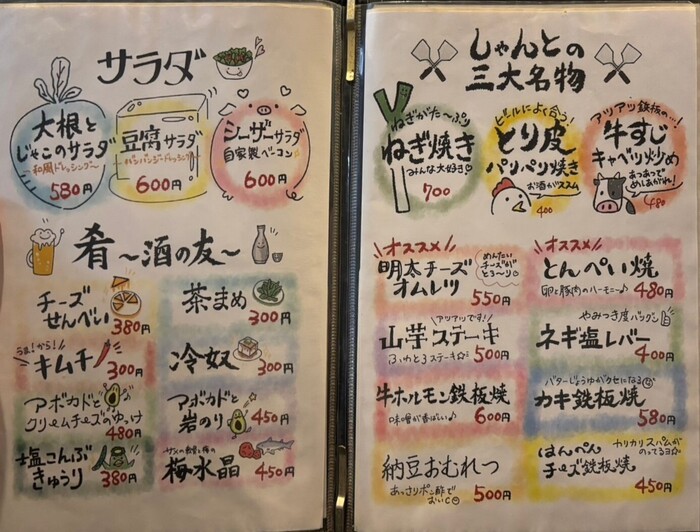 サラダ
大根と
じゃこのサラダ
和風ドレッシング〜
580円
豆腐サラダ
600円
シーザーサラダ
自家製ベーコン
600円
肴〜酒の友〜
チーズ
せんべい
380円
茶まめ
300円
うま!から!
キムチ
300円
冷奴
300円
アボカドと
クリームチーズのゆっけ
480円
アボカドと
岩のり
450円
塩こんぶ
きゅうり
380円
梅水晶
450円
しゃんとの
三大名物
ねぎがた〜ぷり
ねぎ焼き
みんな大好き♡
700
ビールによく合う!
とり皮
パリパリ焼き
お酒がススム
400
アツアツ鉄板の…!
牛すじ
キャベツ炒め
あつあつで
めしあがれ!
480
オススメ
明太チーズ
オムレツ
めんたい
チーズが
とろ〜り
550円
オススメ
とんぺい焼
卵と豚肉のハーモニー♪
480円
アツアツです!
山芋ステーキ
ふわとろステーキ☆
500円
やみつき度バツグン
ネギ塩レバー
400円
牛ホルモン鉄板焼
味噌が香ばしい♪
600円
バターじょうゆがクセになる
カキ鉄板焼
580円
納豆おむれつ
あっさりポン酢で
おいしい
500円
カリカリスパムが
のってるヨ☆
はんぺん
チーズ鉄板焼
450円